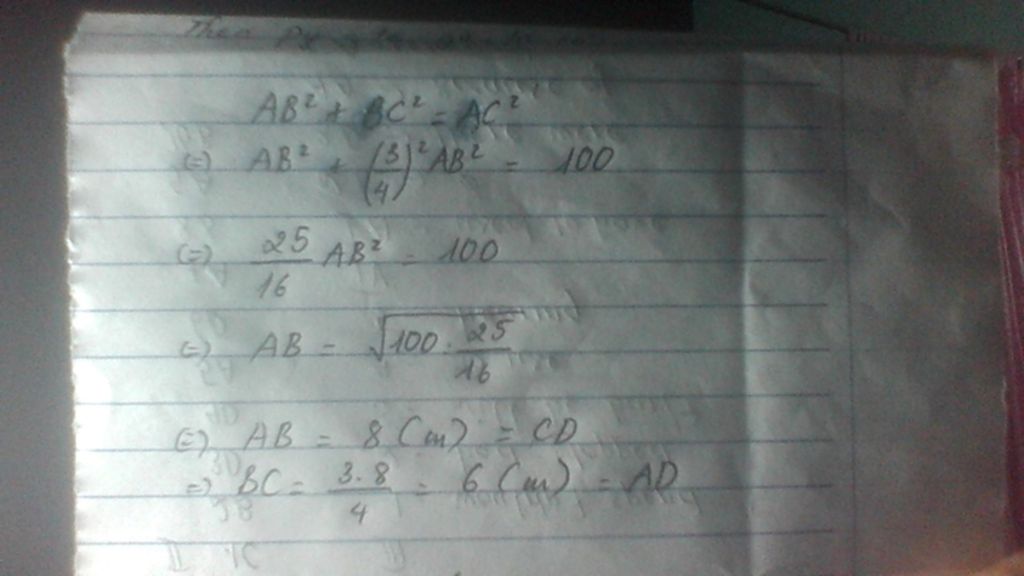 AB² + BC² = AC²
(=) AB² + (3/4)² AB² = 100
(=) 25/16 AB² = 100
(=) AB = √(100 · 25/16)
(=) AB = 8 (m) = CD
=) BC = 3·8/4 = 6 (m) = AD